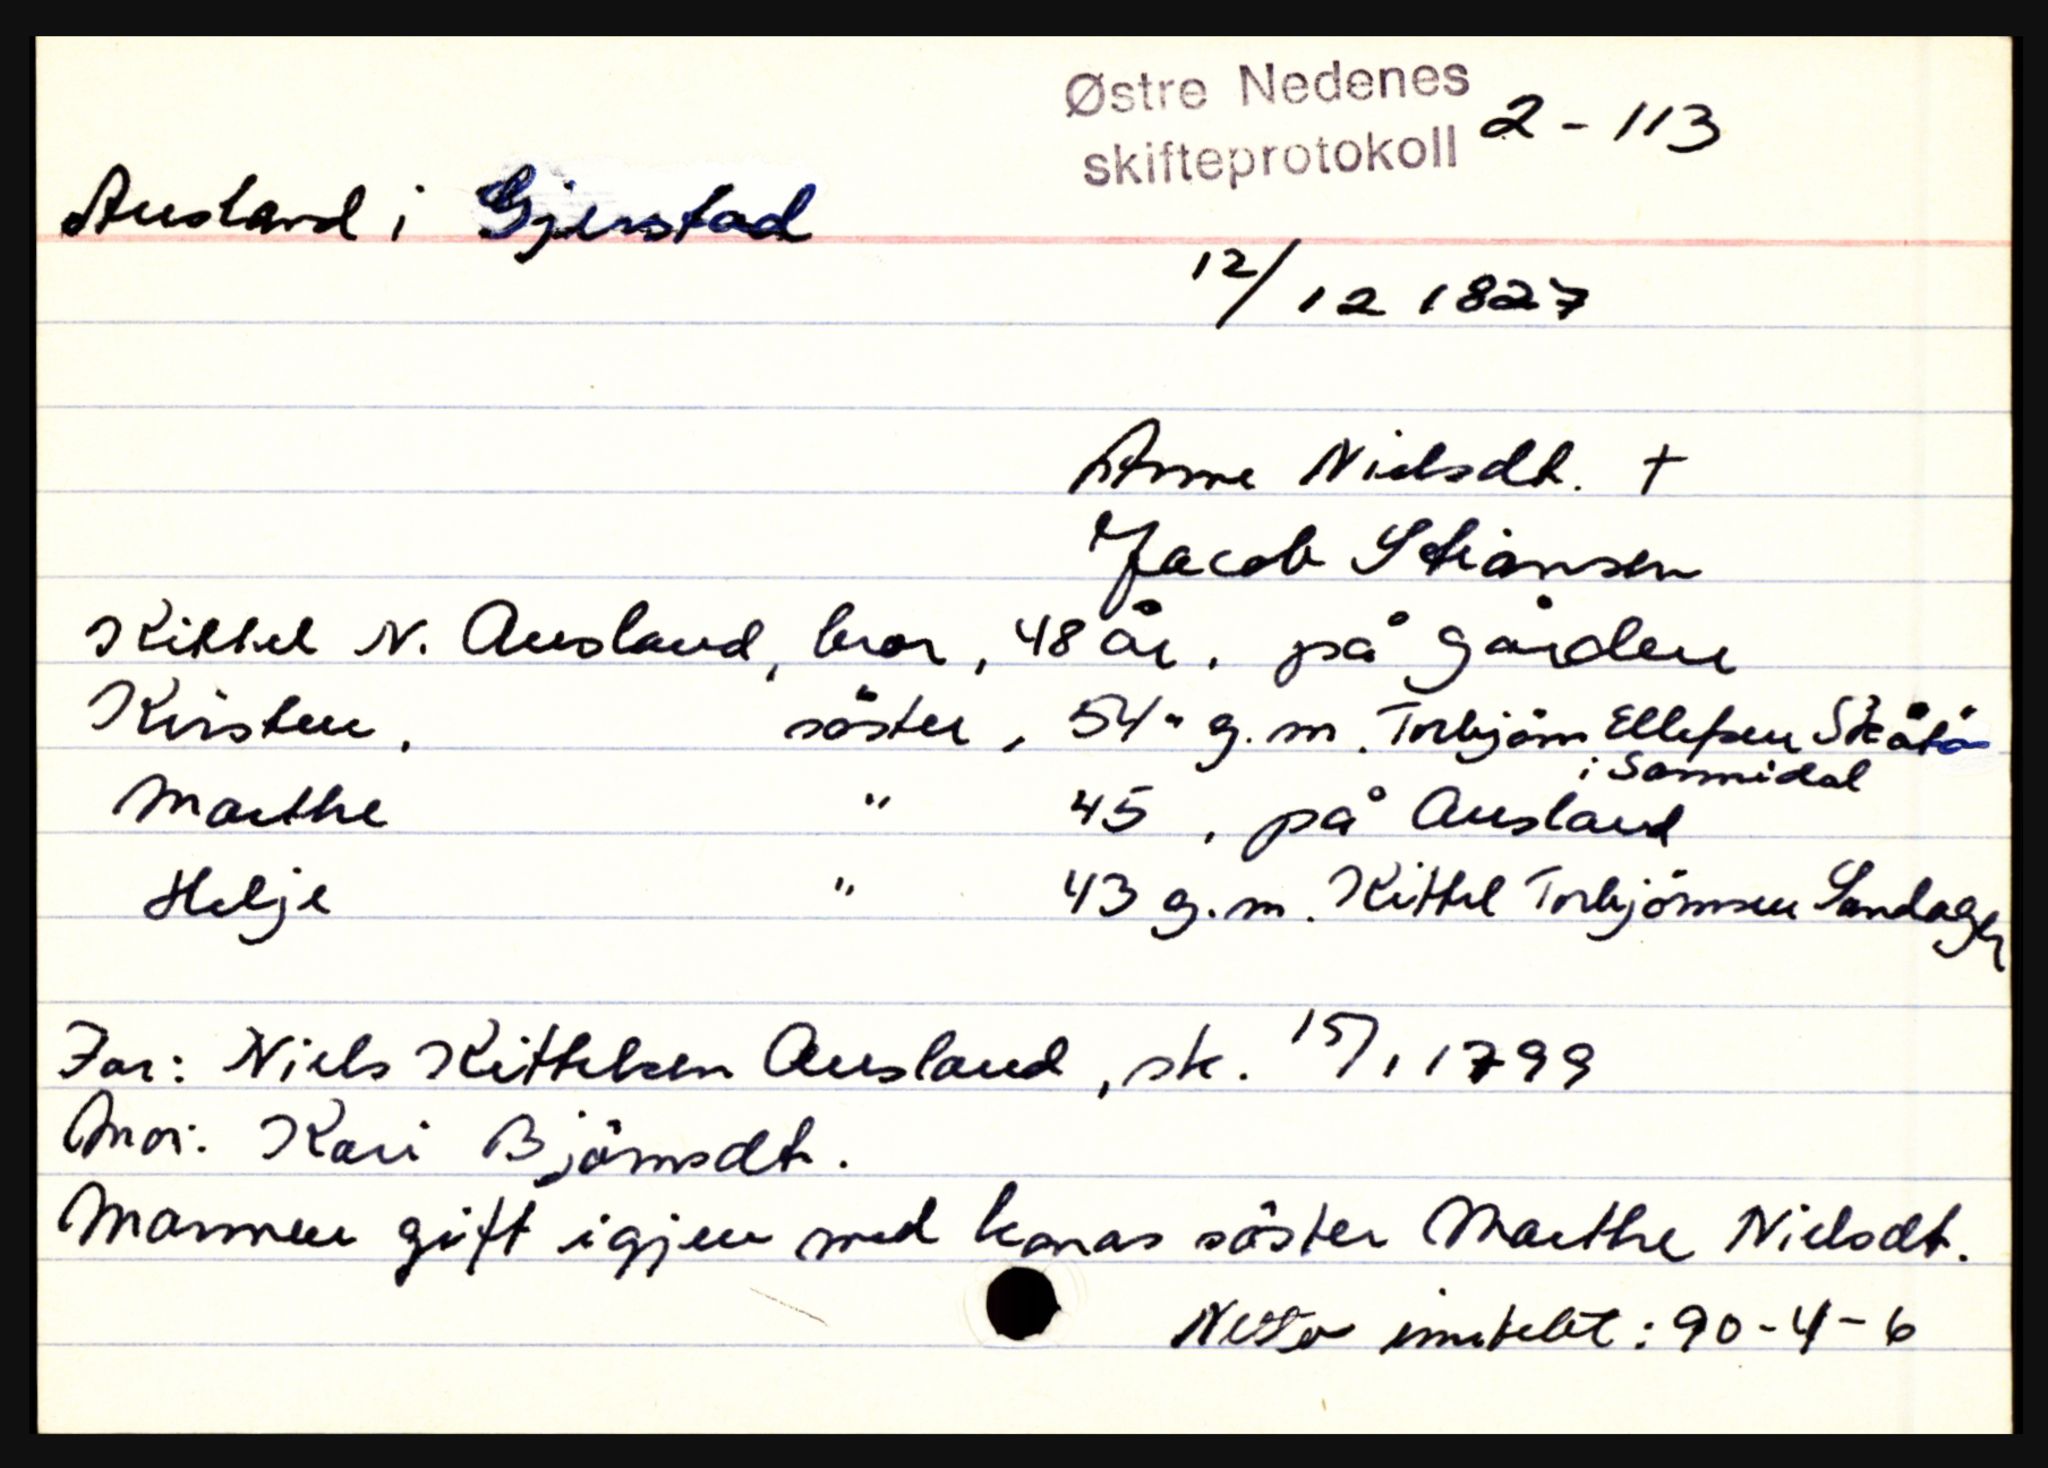 Østre Nedenes
skifteprotokoll 2-113
Ausland i Gjerstad
12/12 1827
Anne Nielsdt. +
Jacob Stiansen
Kittel N. Ausland, bror, 48 år, på gården
Kirsten, söster, 54 " g.m. Torbjörn Ellefsen Skåtö
i Sannidal
Marthe " 45, på Ausland
Helje " 43 g.m. Kittel Torbjörnsen Sandager
Far: Niels Kittelsen Ausland, sk. 15/1 1799
Mor: Kari Björnsdt.
Mannen gift igjen med konas söster Marthe Nielsdt.
Netto innteket: 90-4-6